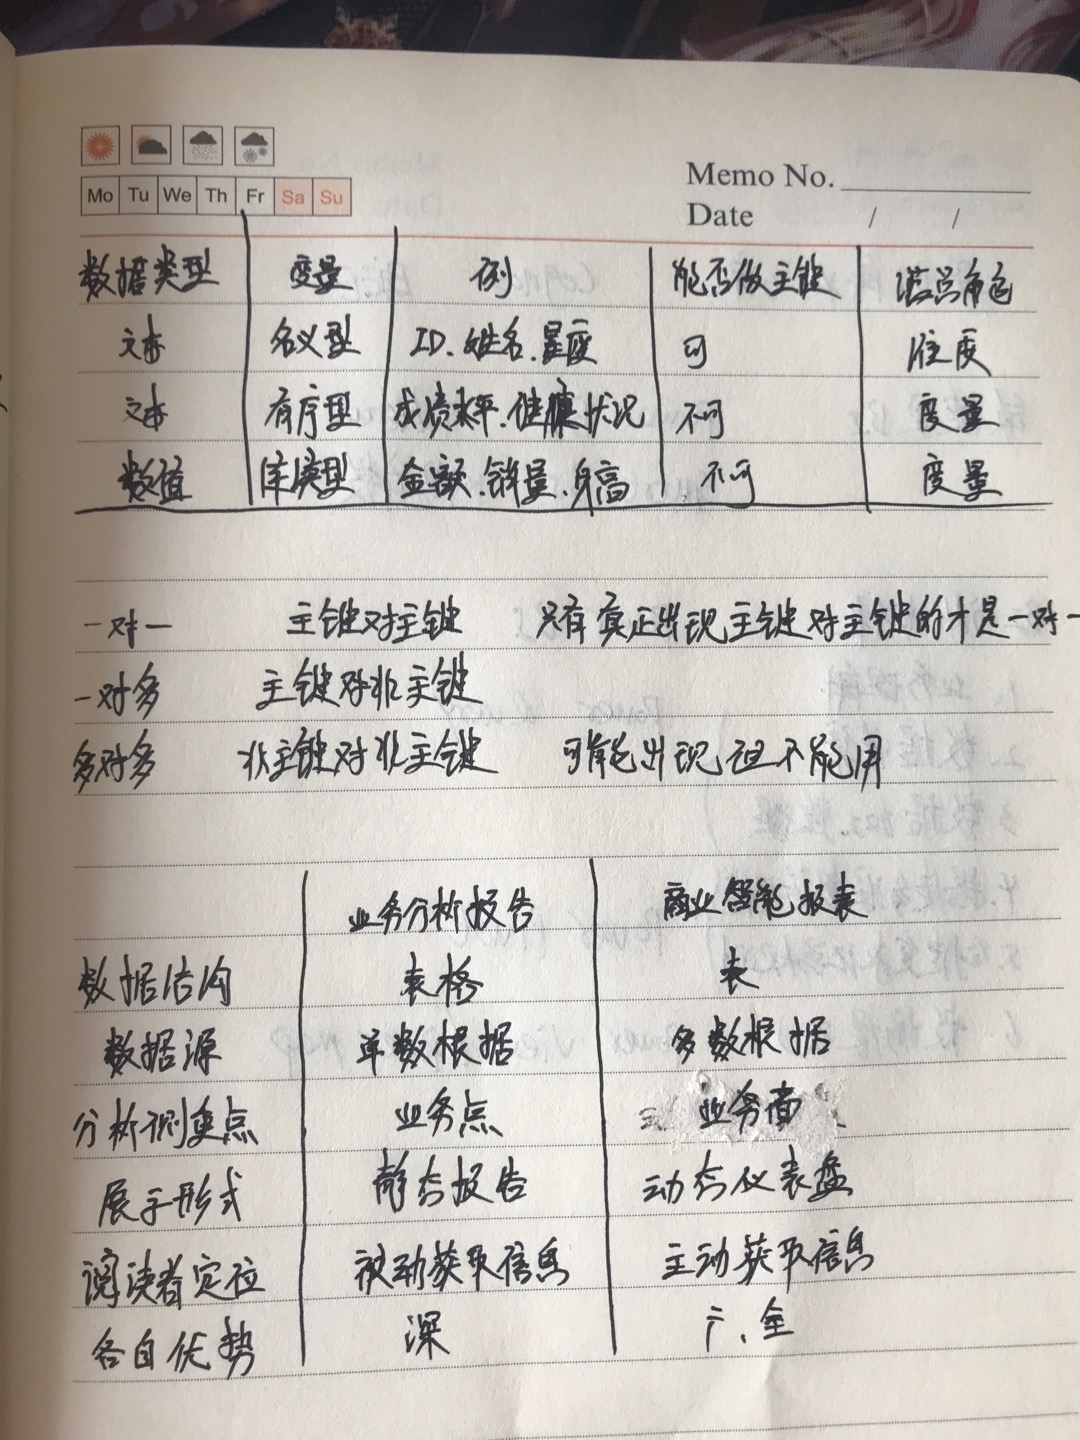 Mo Tu We Th Fr Sa Su
Memo No.
Date / /
数据类型 变量 例 能否做主键 汇总角色
文本 名义型 ID.姓名.星座 可 维度
文本 有序型 成绩水平.健康状况 不可 度量
数值 连续型 金额.销量.身高 不可 度量
一对一 主键对主键 只有真正出现主键对主键的才是一对一
一对多 主键对非主键
多对多 非主键对非主键 可能出现但不能用
业务分析报告 商业智能报表
数据结构 表格 表
数据源 单数根据 多数根据
分析侧重点 业务点 业务面
展示形式 静态报告 动态仪表盘
阅读者定位 被动获取信息 主动获取信息
各自优势 深 广、全